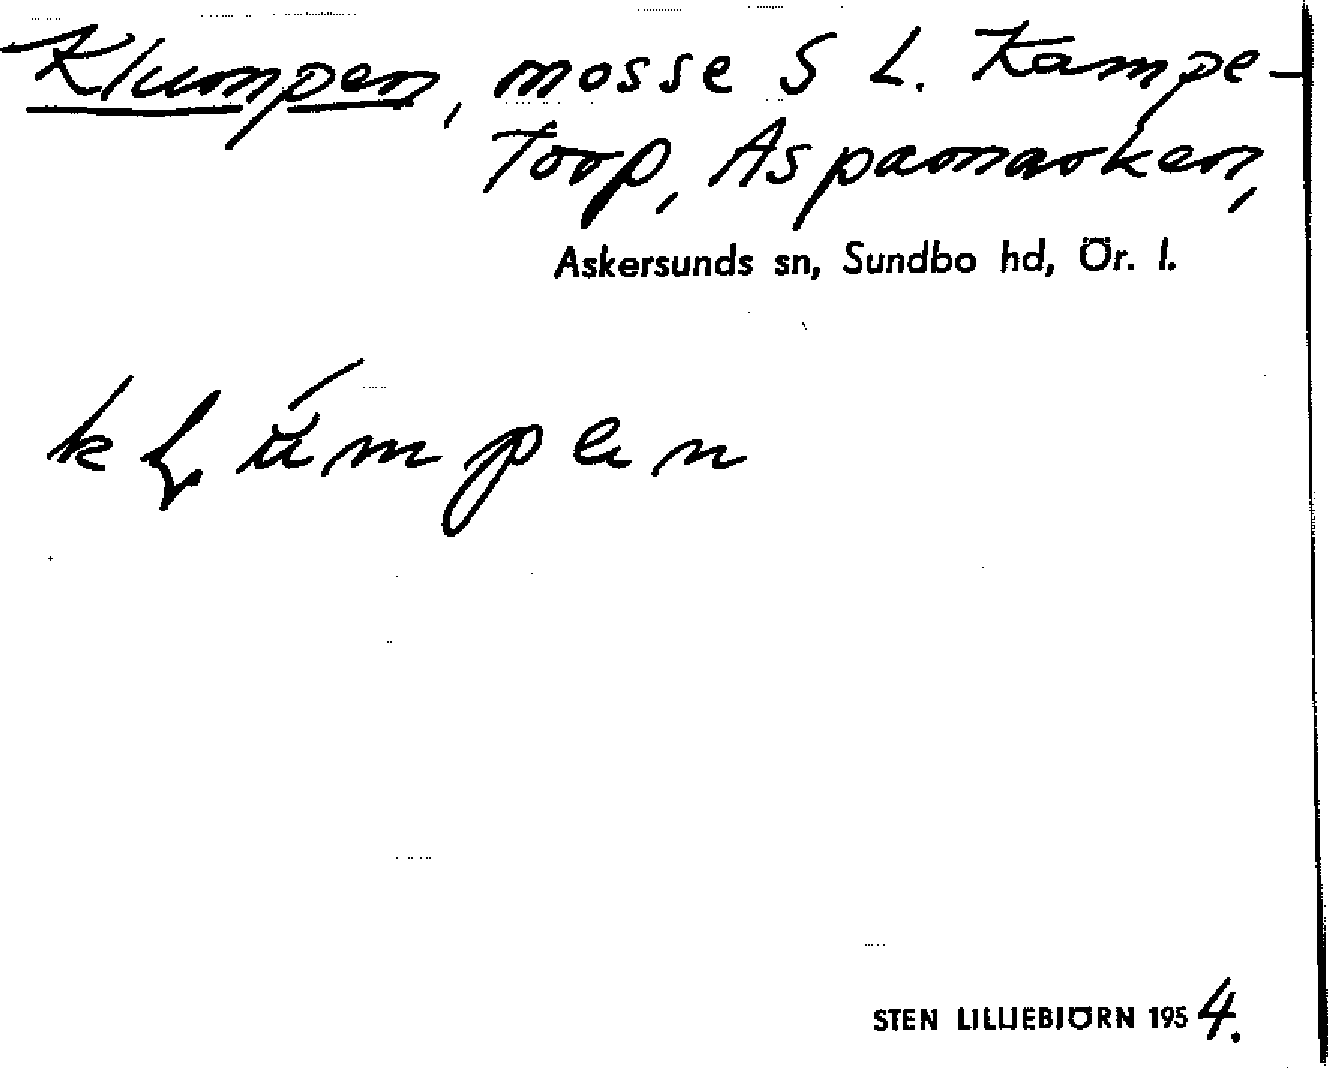 Klumpen, mosse S L. Kampe-
Torp, Aspamarken,
Askersunds sn, Sundbo hd, Ör. l.
STEN LILLIEBJÖRN 1954.